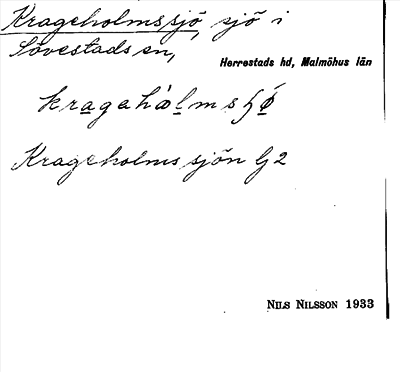 Krageholmssjö, sjö i
Sövestads sn,
Herrestads hd, Malmöhus län
Krageholmssjön Gj2
NILS NILSSON 1933